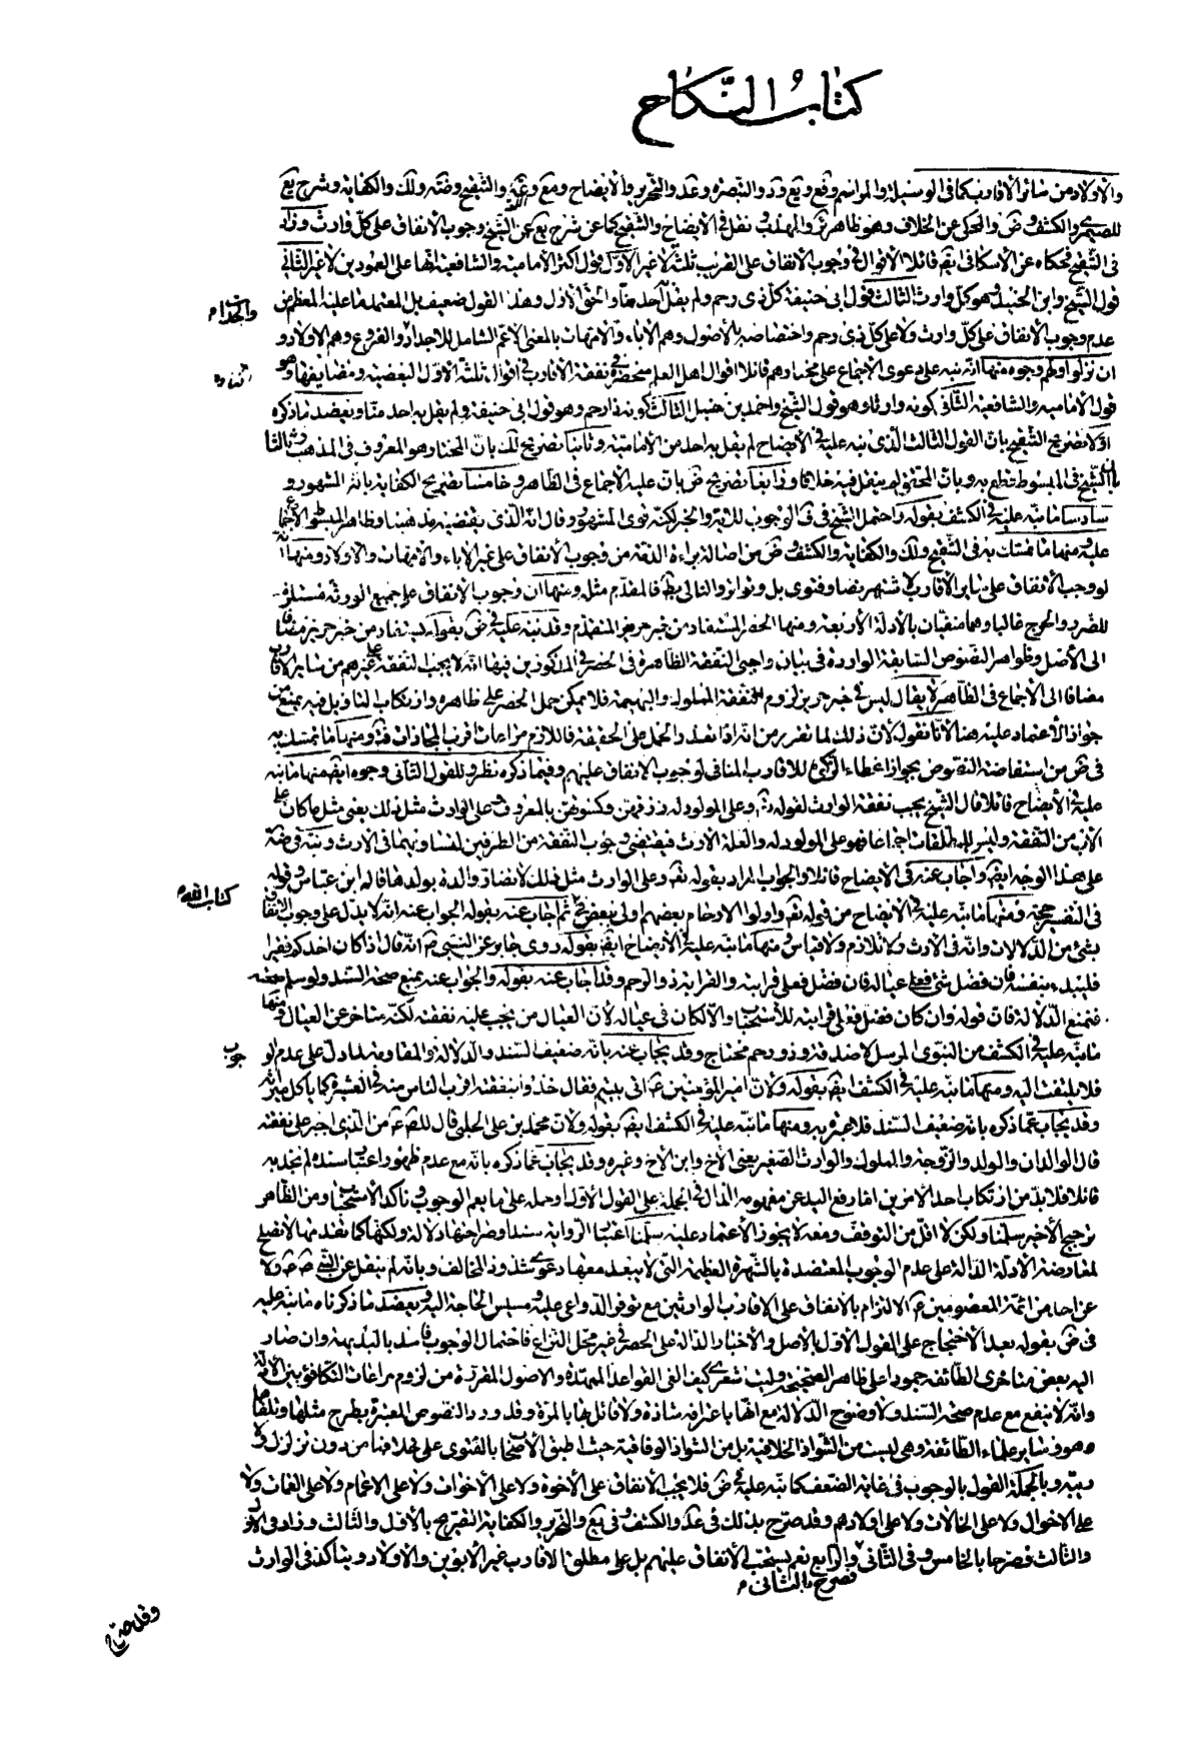 كتاب النكاح
والاولاد من سائر الاقارب كما في الوسيلة والمراسم وفع ويع ود والتبصرة وعد والتحرير والايضاح ومع وغيه والتنقيح وضه ولك والكفاية وشرح يع
للصيمري والكشف وض والمحكي عن الخلاف وهو ظاهر ئر والمهذب ونقل في الايضاح والتنقيح كما عن شرح يع عن الشيخ وجوب الانفاق على كل وارث وزاد
في التنقيح فحكاه عن الاسكافي ايضا قائلا الاقوال في وجوب الانفاق على القريب ثلثة لا غير الاول قول اكثر الامامية والشافعية انها على العمودين لا غير الثاني
قول الشيخ وابن الحنبل وهو كل وارث الثالث قول ابي حنيفة كل ذي رحم ولم يقل احد منا والحق الاول وهذا القول ضعيف بل المعتمد ما عليه المعظم من
والاجداد
عدم وجوب الانفاق على كل وارث ولا على كل ذي رحم واختصاصه بالاصول وهم الاباء والامهات بالمعنى الاعم الشامل للاجداد والفروع وهم الاولاد و
ان نزلوا ولهم وجوه منها انه نبه على دعوى الاجماع على مختارهم قائلا اقوال اهل العلم منحصرة في نفقة الاقارب في اقوال ثلثة الاول البعضية ومضايفها وهو
قول الامامية والشافعية الثاني كونه وارثا وهو قول الشيخ واحمد بن حنبل الثالث كونه ذا رحم وهو قول ابي حنيفة ولم يقل به احد منا ويعضد ما ذكره
اولا تصريح التنقيح بان القول الثالث الذي نبه عليه في الايضاح لم يقل به احد من الامامية وثانيا تصريح لك بان المختار هو المعروف في المذهب وثالثا
بان الشيخ في المبسوط قطع به وبان المحقق لم ينقل فيه خلافا ورابعا تصريح ض بان عليه الاجماع في الظاهر وخامسا تصريح الكفاية بانه المشهور و
سادسا ما نبه عليه في الكشف بقوله واحتمل الشيخ في ف الوجوب للاية والخبر لكنه قوى المشهور وقال انه الذي يقتضيه مذهبنا وظاهر المبسوط الاجماع
عليه ومنها ما تمسك به في التنقيح ولك والكفاية والكشف وض من اصالة براءة الذمة من وجوب الانفاق على غير الاباء والامهات والاولاد ومنها انه
لو وجب الانفاق على سائر الاقارب لاشتهر نصا وفتوى بل وتواتر والتالي بط فالمقدم مثله ومنها ان وجوب الانفاق على جميع الورثة مستلزم
للضرر والحرج غالبا وهما منفيان بالادلة الاربعة ومنها الحصر المستفاد من خبر حريز المتقدم وقد نبه عليه في ض بقوله يستفاد من خبر حريز مضافا
الى الاصل وظواهر النصوص السابقة الواردة في بيان واجبي النفقة الظاهرة في الحصر في المذكورين فيها انه لا يجب النفقة على غيرهم من سائر الاقارب
مضافا الى الاجماع في الظاهر لا يقال ليس في خبر حريز لزوم نفقة المملوك والبهيمة فلا يمكن حمل الحصر على ظاهره وارتكاب التاويل فيه يمنع من
جواز الاعتماد عليه هنا لانا نقول لان ذلك لما تقرر من انه اذا تعذر الحمل على الحقيقة فاللازم مراعات اقرب المجازات فت ومنها ما تمسك به
في ض من استفاضة النصوص بجواز اعطاء الزكوة للاقارب المنافي لوجوب الانفاق عليهم وفيما ذكره نظر وللقول الثاني وجوه ايضا منها ما نبه
عليه في الايضاح قائلا قال الشيخ يجب نفقة الوارث لقوله تع وعلى المولود له رزقهن وكسوتهن بالمعروف وعلى الوارث مثل ذلك يعني مثل ما كان على
الاب من النفقة وليس للمطلقات اجماعا فهو على المولود له والعلة الارث فيقتضي وجوب النفقة من الطرفين لتساويهما في الارث ونبه في ضه
على هذا الوجه ايضا واجاب عنه في الايضاح قائلا والجواب المراد بقوله تع وعلى الوارث مثل ذلك لا تضار والدة بولدها قاله ابن عباس وقوله
كتاب الله
في التفسير حجة ومنها ما نبه عليه في الايضاح من قوله تع واولوا الارحام بعضهم اولى ببعض ثم اجاب عنه بقوله الجواب عنه انه لا يدل على وجوب الانفاق
بشيء من الدلالات وانه في الارث ولا تلازم ولا قياس ومنها ما نبه عليه في الايضاح ايضا بقوله روى جابر عن النبي ص انه قال اذا كان احدكم فقيرا
فليبدء بنفسه فان فضل شيء فعلى عياله فان فضل فعلى قرابته والقرابة ذو الرحم وقد اجاب عنه بقوله والجواب عنه بمنع صحة السند ولو سلم صحته
فنمنع الدلالة فان قوله وان كان فضل فعلى قرابته للاستحباب والا لكان في عياله لان العيال من يجب عليه نفقته لكنه متاخر عن العيال ومنها
ما نبه عليه في الكشف من النبوي المرسل لا صدقة وذو رحم محتاج وقد يجاب عنه بانه ضعيف السند والدلالة والمقاومة لما دل على عدم الو
جوب
فلا يلتفت اليه ومنها ما نبه عليه في الكشف ايضا بقوله ولان امير المؤمنين ع اتى بيتيم فقال خذوا بنفقته اقرب الناس منه في العشيرة كما ياكل ميراثه
وقد يجاب عما ذكره بانه ضعيف السند فلا عبرة به ومنها ما نبه عليه في الكشف ايضا بقوله ولان محمد بن علي الحلبي قال للصادق ع من الذي اجبر على نفقته
قال الوالدان والولد والزوجة والمملوك والوارث الصغير يعني الاخ وابن الاخ وغيره وقد يجاب عما ذكره بانه مع عدم ظهور اعتبار سنده لم نجد به
قائلا فلا بد من ارتكاب احد الامرين اما رفع اليد عن مفهومه الدال في الجملة على القول الاول او حمله على ما يعم الوجوب وتاكد الاستحباب ومن الظاهر
ترجيح الاخير سلمنا ولكن لا اقل من التوقف ومعه لا يجوز الاعتماد عليه سلمنا اعتبار الرواية سندا وصراحتها دلالة ولكنها كما تقدمها لا تصلح
لمعارضة الادلة الدالة على عدم الوجوب المعتضدة بالشهرة العظيمة التي لا يبعد معها دعوى شذوذ المخالف وبانه لم ينقل عن النبي ص ولا
عن احد من ائمة المعصومين ع الالتزام بالانفاق على الاقارب الوارثين مع توفر الدواعي عليه ومسيس الحاجة اليه ويعضد ما ذكرناه ما نبه عليه
في ض بقوله بعد الاحتجاج على القول الاول بالاصل والاخبار الدالة على الحصر في غير محل النزاع فاحتمال الوجوب فاسد بالبديهة وان صار
اليه بعض متاخري الطائفة جمودا على ظاهر الصحيحة وليت شعري كيف الغى القواعد الممهدة والاصول المقررة من لزوم مراعات التكافؤ بين الادلة
وانه لا ينفع مع عدم صحة السند ولا وضوح الدلالة مع انها باعترافه شاذة ولا قائل بها بالمرة وقد ورد النصوص المعتبرة بطرح مثلها وتلقاها
هو وسائر علماء الطائفة وهي ليست من الشواذ الخلافية بل من الشواذ الوفاقية حيث اطبق الاصحاب بالفتوى على خلافها من دون تزلزل ولا
ريبة وبالجملة القول بالوجوب في غاية الضعف كما نبه عليه في ض فلا يجب الانفاق على الاخوة ولا على الاخوات ولا على الاعمام ولا على العمات ولا
على الاخوال ولا على الخالات ولا على اولادهم وقد صرح بذلك في عد والكشف وفي يع والتحرير والكفاية التصريح بالاول والثالث وزاد في الاول
والثالث فصرحا بالخامس وفي الثاني والرابع نعم يستحب الانفاق عليهم بل على مطلق الاقارب غير الابوين والاولاد ويتاكد في الوارث
فصرح بالثاني
وقد صرح